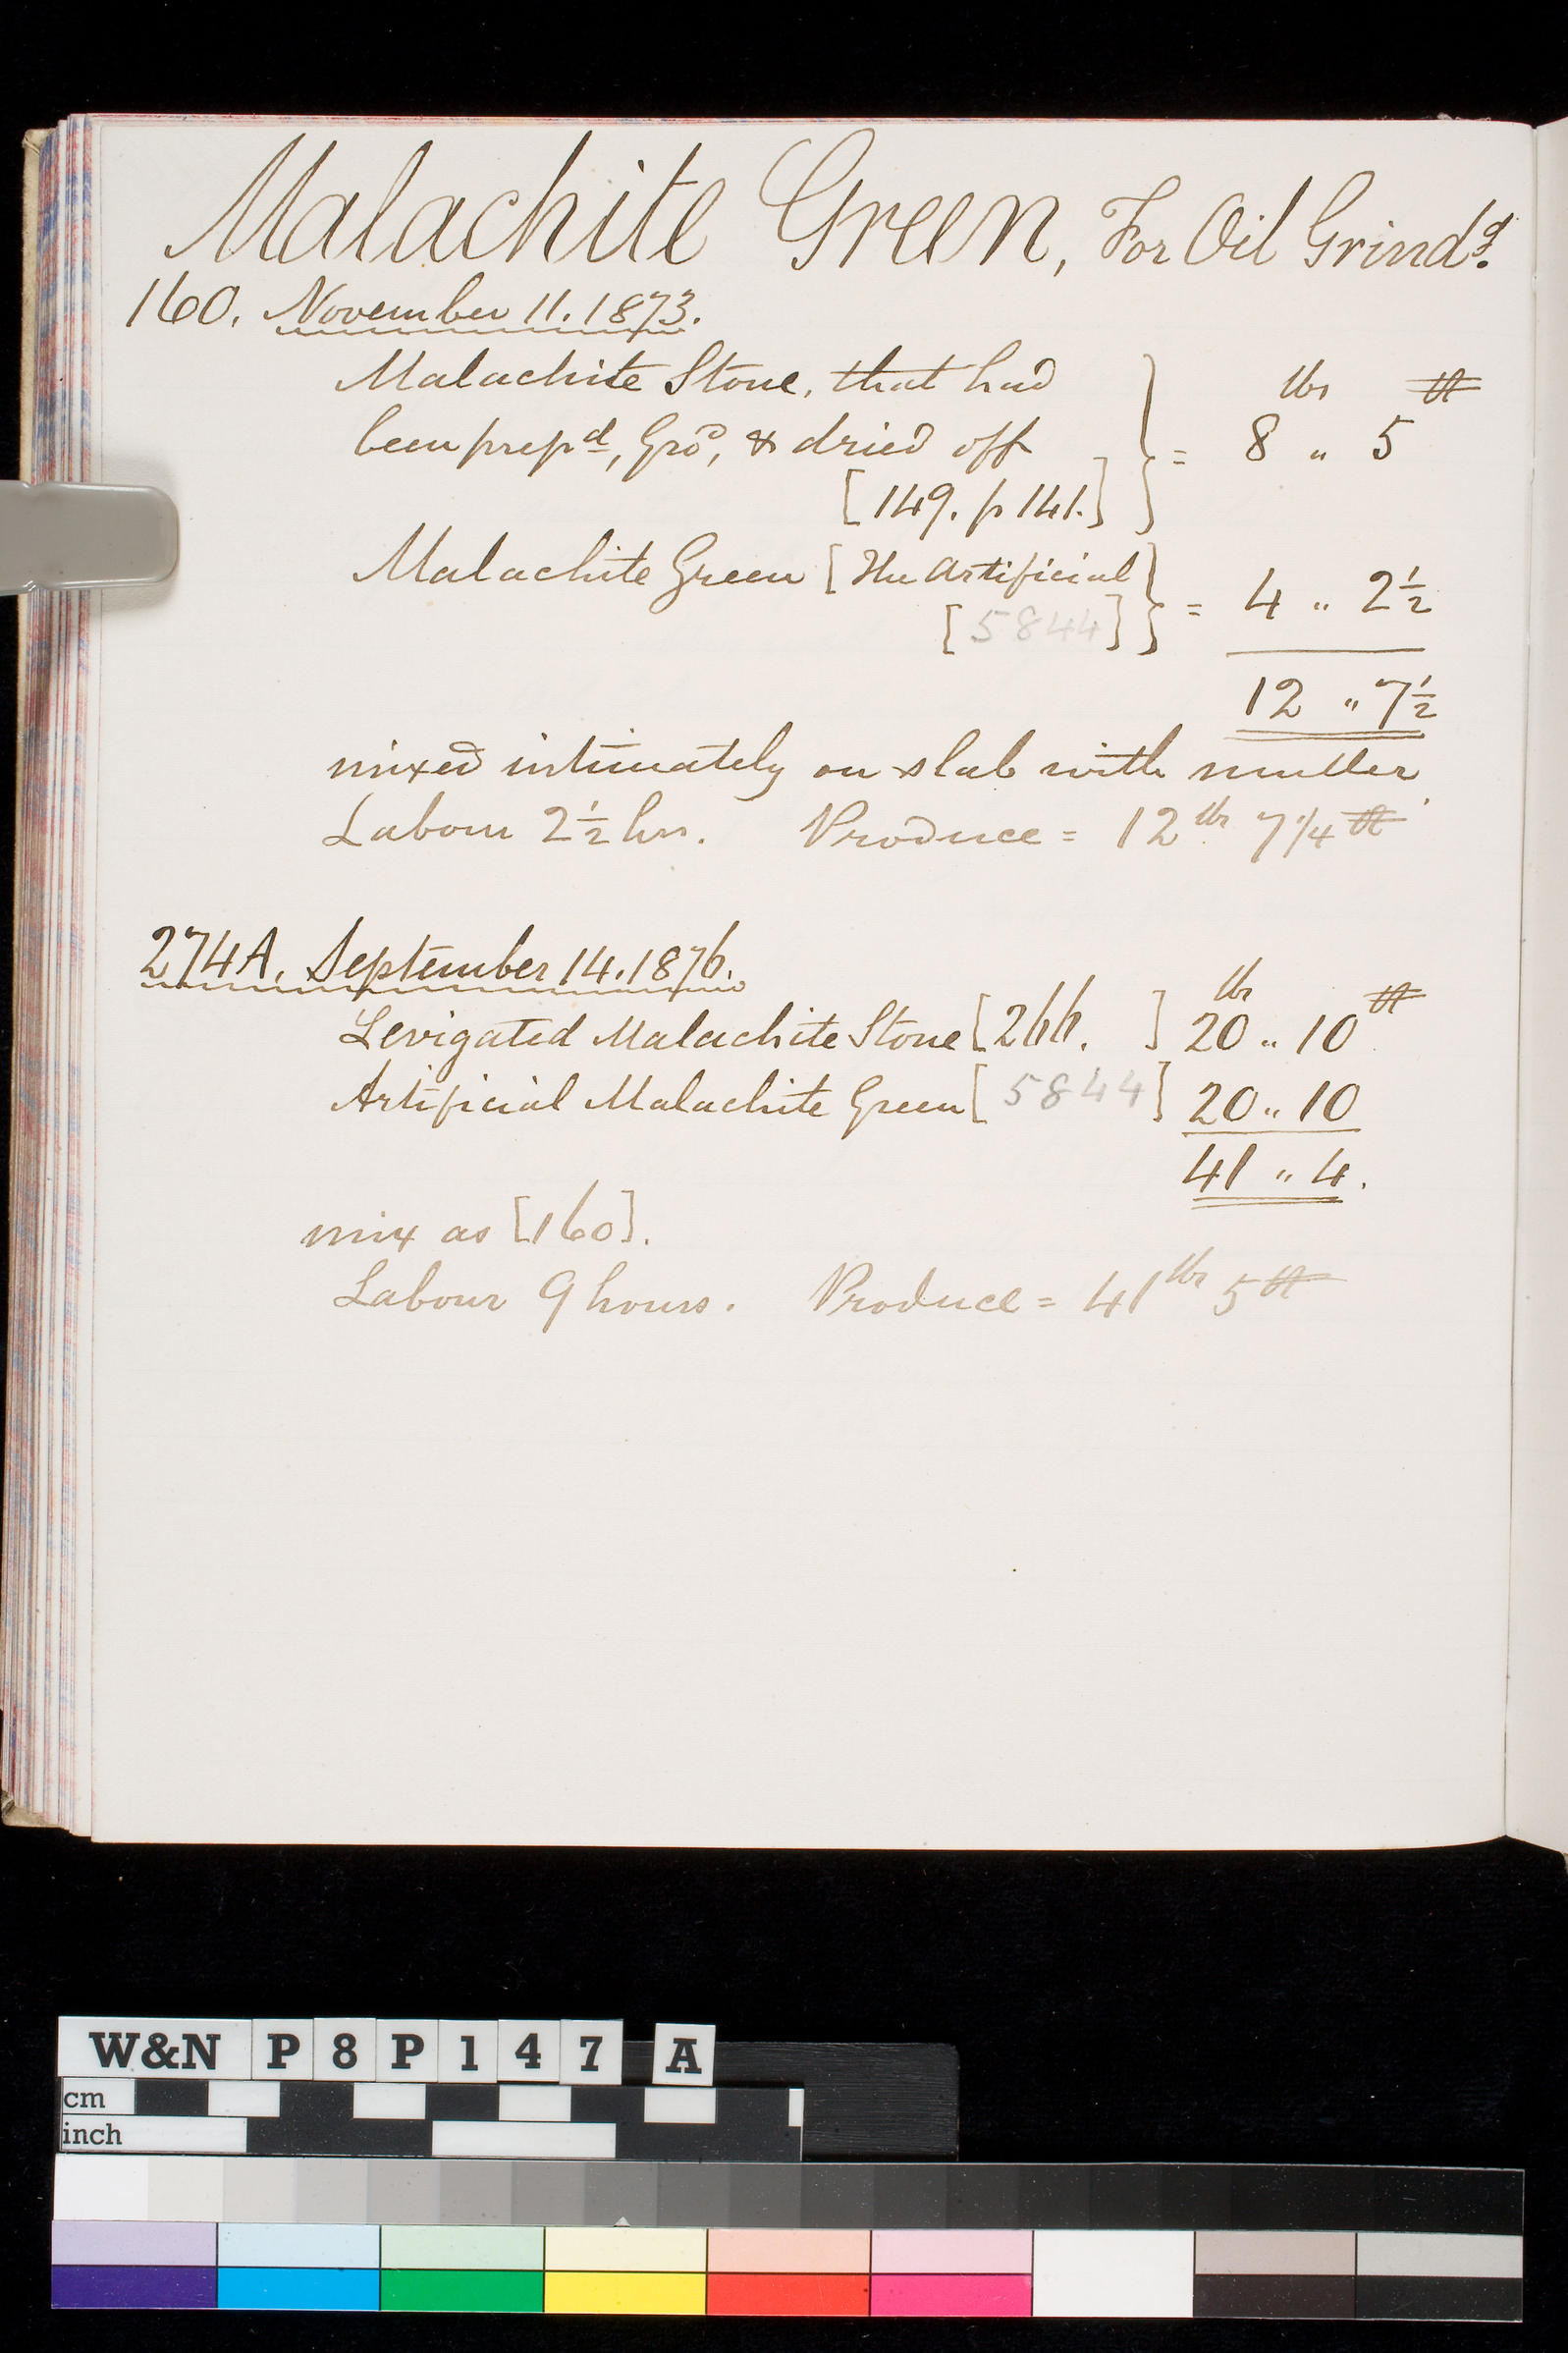 Malachite Green, For Oil Grindg.
160. November 11. 1873.
Malachite Stone, that had
lbs
been prepd, Grd, & dried off = 8 " 5
[149. p 141.]
Malachite Green [The Artificial
[5844] = 4 " 2½
12 " 7½
mixed intimately on slab with muller.
Labour 2½ hrs. Produce = 12 lbs 7 1/4
274A. September 14. 1876.
lbs
Levigated Malachite Stone [266. ] 20 " 10
Artificial Malachite Green [5844] 20 " 10
41 " 4.
mix as [160].
Labour 9 hours. Produce = 41 lbs 5
W&N P8P147 A
cm
inch